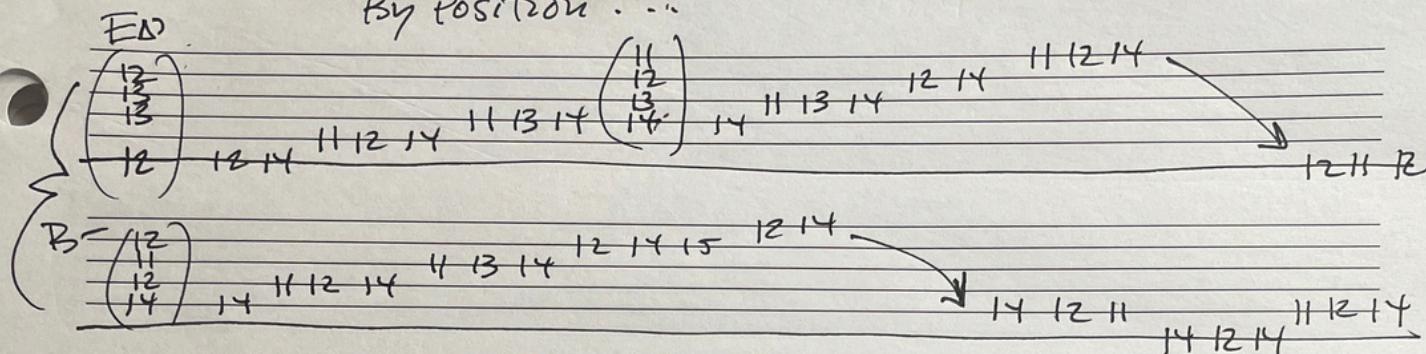 By Position ....
EΔ
12 13 13 12 12 14 11 12 14 11 13 14 11 12 13 14 14 11 13 14 12 14 11 12 14 12 11 12
B- 12 11 12 14 14 11 12 14 11 13 14 12 14 15 12 14 14 12 11 14 12 14 11 12 14